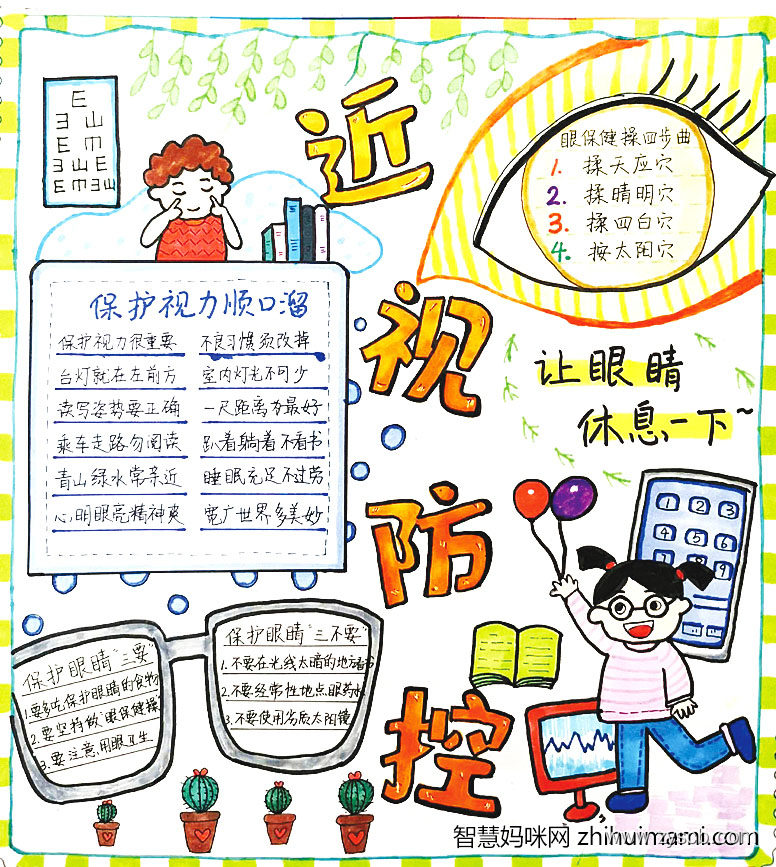 E
E Ш
E m
E Ш E
E m E Ш
近视防控
眼保健操四步曲
1. 揉天应穴
2. 揉晴明穴
3. 揉四白穴
4. 按太阳穴
保护视力顺口溜
保护视力很重要 不良习惯须改掉
台灯就在左前方 室内灯光不可少
读写姿势要正确 一尺距离为最好
乘车走路勿阅读 趴着躺着不看书
青山绿水常亲近 睡眠充足不过劳
心明眼亮精神爽 宽广世界多美妙
让眼睛
休息一下~
1 2 3
4 5 6
7 8 9
保护眼睛"三要"
1.要多吃保护眼睛的食物
2.要坚持做"眼保健操"
3.要注意用眼卫生
保护眼睛"三不要"
1.不要在光线太暗的地方看书
2.不要经常性地点眼药水
3.不要使用劣质太阳镜
智慧妈咪网 zhihuimami.com